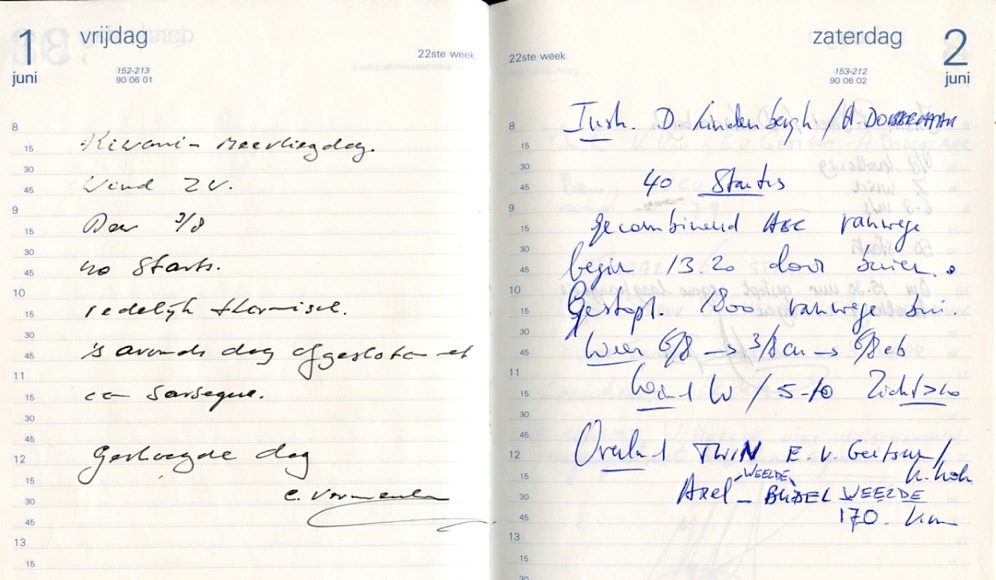 1 vrijdag
juni
152-213
90 06 01
22ste week
8
Kiwani- meevliegdag.
15
30
Wind ZW.
45
9
15
30
40 Starts.
45
10
redelijk thermisch.
15
30
's avonds dag afgesloten met
45
11
een barbeque.
15
30
45
12
Geslaagde dag
15
30
45
13
15
zaterdag 2
juni
22ste week
153-212
90 06 02
8
Instr. D. Lindenbergh / A. DOBBELAAR
15
30
40 Starts
45
9
gecombineerd ABC vanwege
15
30
begin 13.20 door buien.
45
10
Gestopt. 1800 vanwege bui.
15
30
Weer 6/8 → 3/8 cu → 6/8 cb
45
11
Wind W / 5-10 Zicht >20
15
30
45
12
Overland TWIN E. v. Geetsum /
15
WEELDE
Axel - BUDEL WEELDE
30
170. km
45
13
15
30